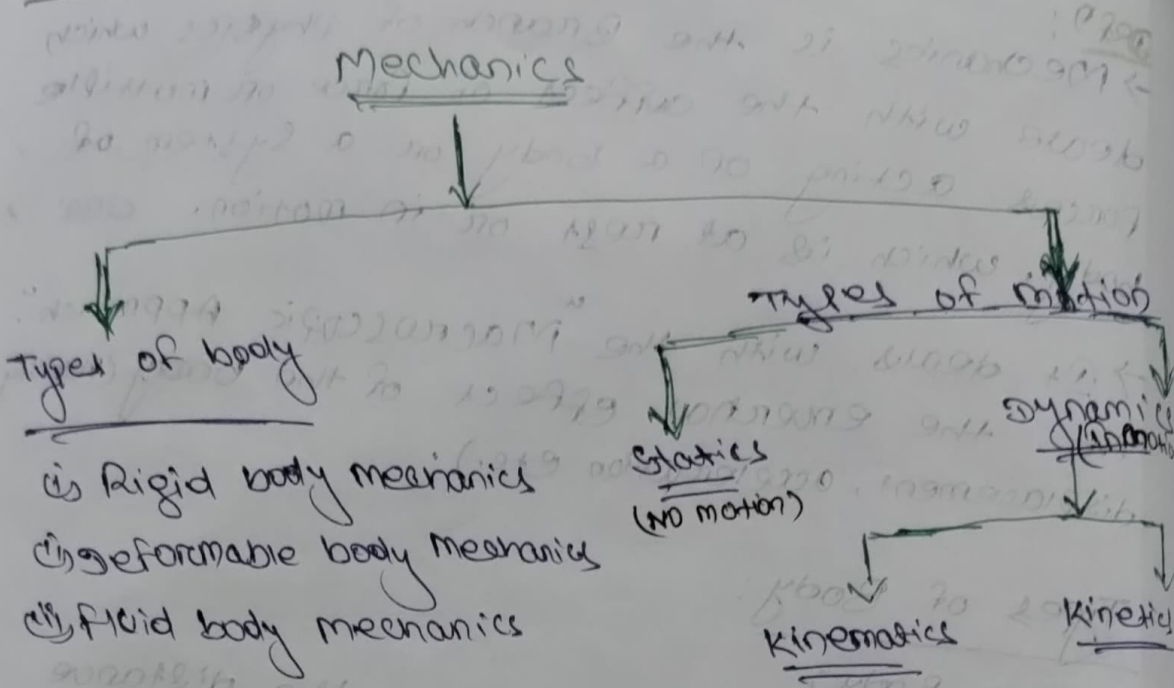 Mechanics
Types of body
(i) Rigid body mechanics
(ii) Deformable body mechanics
(iii) fluid body mechanics
Types of motion
Statics
(NO motion)
Dynamics
Kinematics
Kinetics